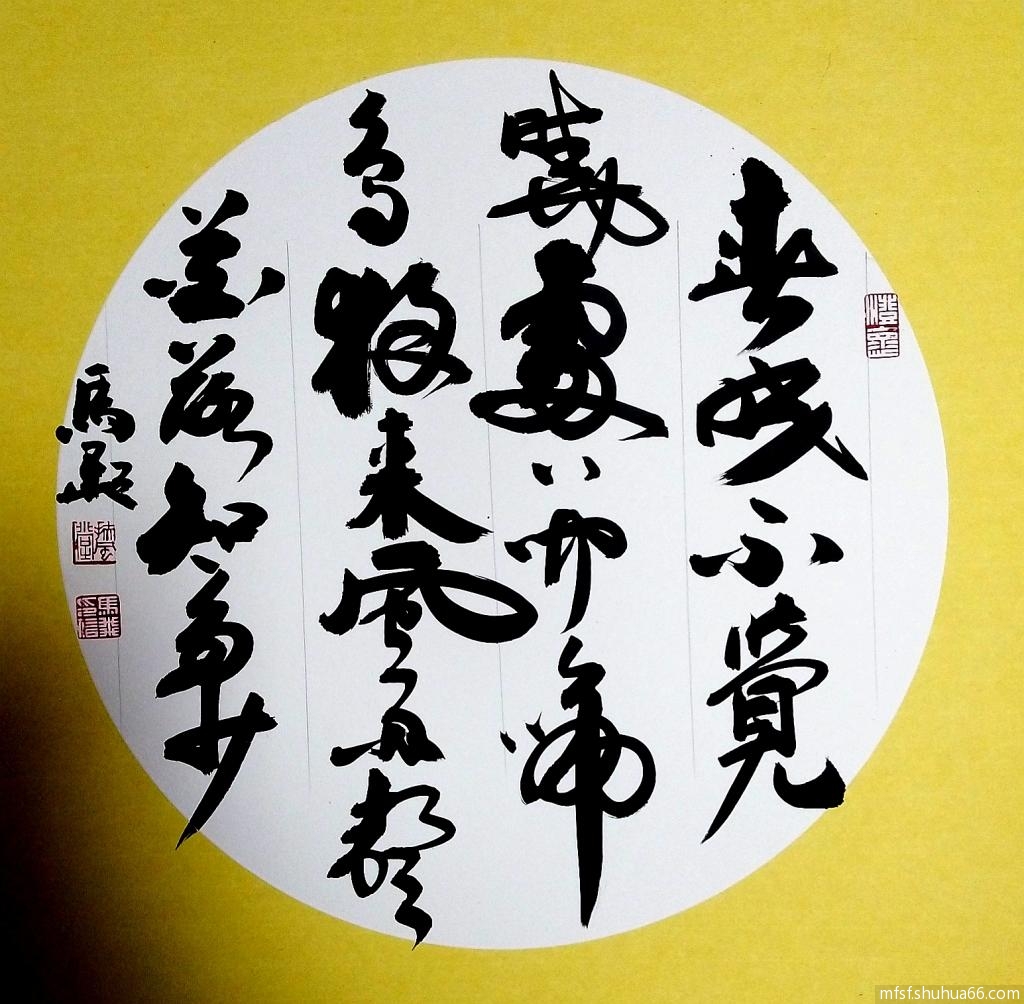 春眠不覺
曉處〻聞啼
鳥夜来風雨聲
花落知多少
馬
mfsf.shuhua66.com